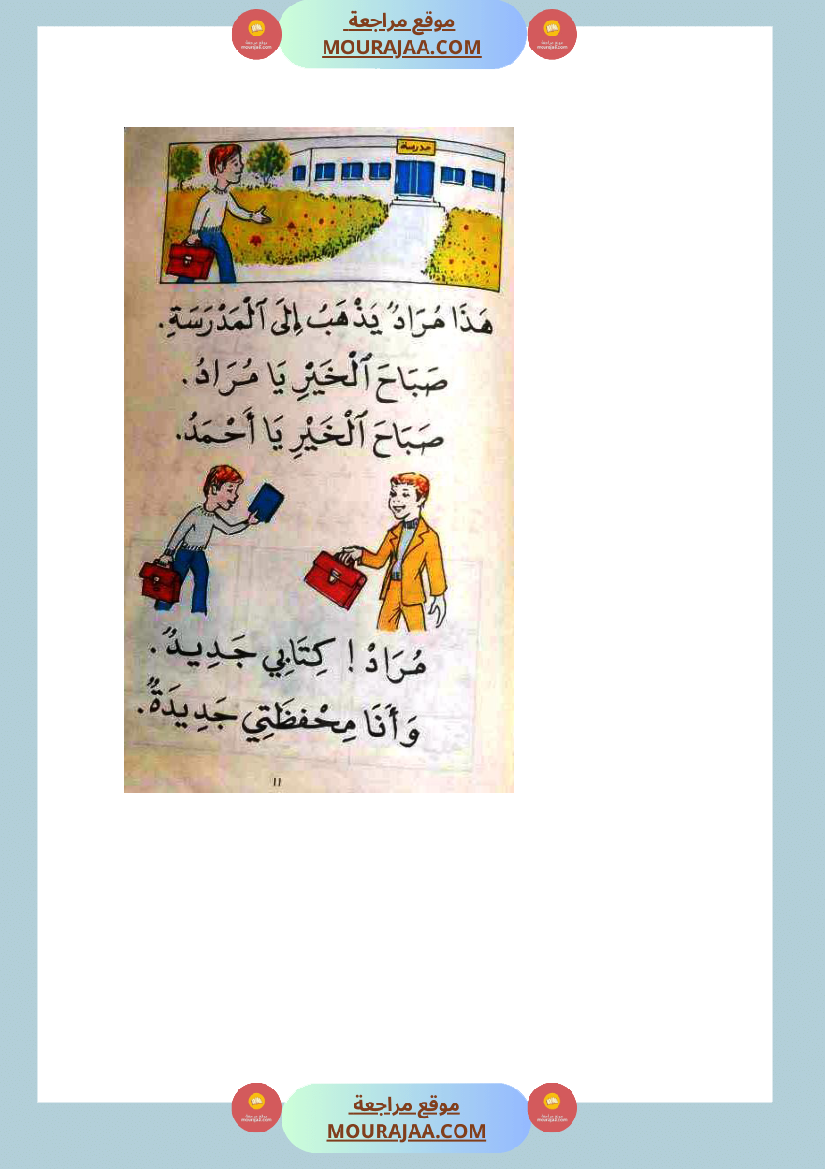 موقع مراجعة
MOURAJAA.COM
مدرسة
هَذَا مُرَادٌ يَذْهَبُ إِلَى ٱلْمَدْرَسَةِ.
صَبَاحَ ٱلْخَيْرِ يَا مُرَادُ.
صَبَاحَ ٱلْخَيْرِ يَا أَحْمَدُ.
مُرَادْ! كِتَابِي جَدِيدٌ.
وَأَنَا مِحْفَظَتِي جَدِيدَةٌ.
١١
موقع مراجعة
MOURAJAA.COM